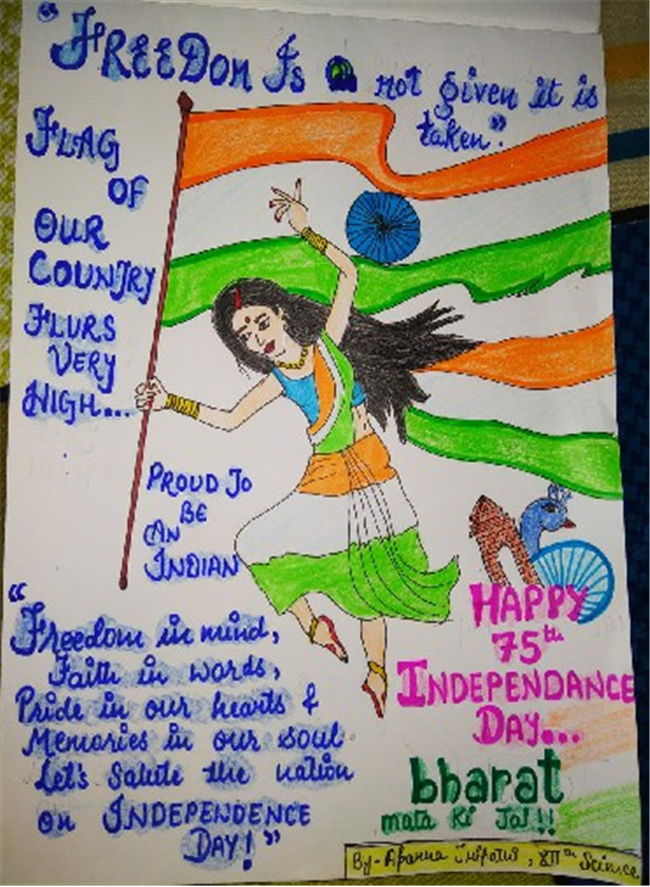 "FREEDOM IS not given it is
taken".
FLAG
OF
OUR
COUNTRY
FLURS
VERY
HIGH...
PROUD TO
BE
AN
INDIAN
"Freedom in mind,
Faith in words,
Pride in our hearts &
Memories in our soul
Let's Salute the nation
on INDEPENDENCE
DAY!"
HAPPY
75th
INDEPENDANCE
DAY...
bharat
mata Ki Jai!!
By- , XIIth Science